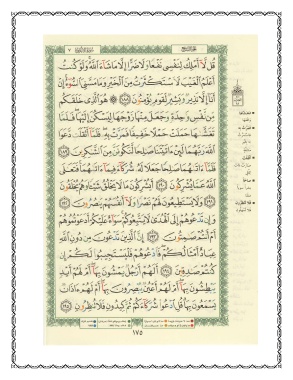 قُل لَّآ أَمْلِكُ لِنَفْسِى نَفْعًا وَلَا ضَرًّا إِلَّا مَا شَآءَ ٱللَّهُ وَلَوْ كُنتُ
أَعْلَمُ ٱلْغَيْبَ لَٱسْتَكْثَرْتُ مِنَ ٱلْخَيْرِ وَمَا مَسَّنِىَ ٱلسُّوٓءُ إِنْ
أَنَا۠ إِلَّا نَذِيرٌ وَبَشِيرٌ لِّقَوْمٍ يُؤْمِنُونَ ١٨٨ هُوَ ٱلَّذِى خَلَقَكُم
مِّن نَّفْسٍ وَٰحِدَةٍ وَجَعَلَ مِنْهَا زَوْجَهَا لِيَسْكُنَ إِلَيْهَا فَلَمَّا
تَغَشَّىٰهَا حَمَلَتْ حَمْلًا خَفِيفًا فَمَرَّتْ بِهِۦ فَلَمَّآ أَثْقَلَت دَّعَوَا
ٱللَّهَ رَبَّهُمَا لَئِنْ ءَاتَيْتَنَا صَٰلِحًا لَّنَكُونَنَّ مِنَ ٱلشَّٰكِرِينَ ١٨٩
فَلَمَّآ ءَاتَىٰهُمَا صَٰلِحًا جَعَلَا لَهُۥ شُرَكَآءَ فِيمَآ ءَاتَىٰهُمَا فَتَعَٰلَى
ٱللَّهُ عَمَّا يُشْرِكُونَ ١٩٠ أَيُشْرِكُونَ مَا لَا يَخْلُقُ شَيْـًٔا وَهُمْ يُخْلَقُونَ
١٩١ وَلَا يَسْتَطِيعُونَ لَهُمْ نَصْرًا وَلَآ أَنفُسَهُمْ يَنصُرُونَ ١٩٢
وَإِن تَدْعُوهُمْ إِلَى ٱلْهُدَىٰ لَا يَتَّبِعُوكُمْ سَوَآءٌ عَلَيْكُمْ أَدَعَوْتُمُوهُمْ
أَمْ أَنتُمْ صَٰمِتُونَ ١٩٣ إِنَّ ٱلَّذِينَ تَدْعُونَ مِن دُونِ ٱللَّهِ
عِبَادٌ أَمْثَالُكُمْ فَٱدْعُوهُمْ فَلْيَسْتَجِيبُوا۟ لَكُمْ إِن
كُنتُمْ صَٰدِقِينَ ١٩٤ أَلَهُمْ أَرْجُلٌ يَمْشُونَ بِهَآ أَمْ لَهُمْ أَيْدٍ
يَبْطِشُونَ بِهَآ أَمْ لَهُمْ أَعْيُنٌ يُبْصِرُونَ بِهَآ أَمْ لَهُمْ ءَاذَانٌ
يَسْمَعُونَ بِهَا قُلِ ٱدْعُوا۟ شُرَكَآءَكُمْ ثُمَّ كِيدُونِ فَلَا تُنظِرُونِ ١٩٥
١٧٥